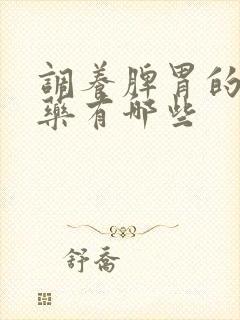 調養脾胃的
藥有哪些
舒喬